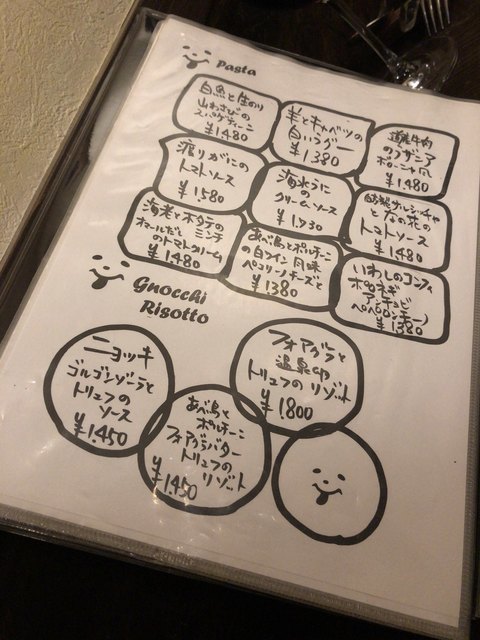 Pasta
白魚と生のり
山わさびの
スパゲティーニ
¥1480
羊とキャベツの
白いラグー
¥1380
道産牛肉
のラザニア
ボローニャ風
¥1480
渡りがにの
トマトソース
¥1580
海水うにの
クリームソース
¥1,730
自家製サルシッチャ
と
菜の花の
トマトソース
¥1480
海老とホタテの
ミンチ
オマールだし
のトマトクリーム
¥1480
あべ鳥とポルチーニ
の白ワイン風味
ペコリーノチーズと
¥1380
いわしのコンフィ
アンチョビ
ペペロンチーノ
¥1380
Gnocchi
Risotto
ニョッキ
ゴルゴンゾーラと
トリュフの
ソース
¥1.450
フォアグラと
温泉卵
トリュフのリゾット
¥1.800
あべ鳥と
ポルチーニ
フォアグラバター
トリュフの
リゾット
¥1.450